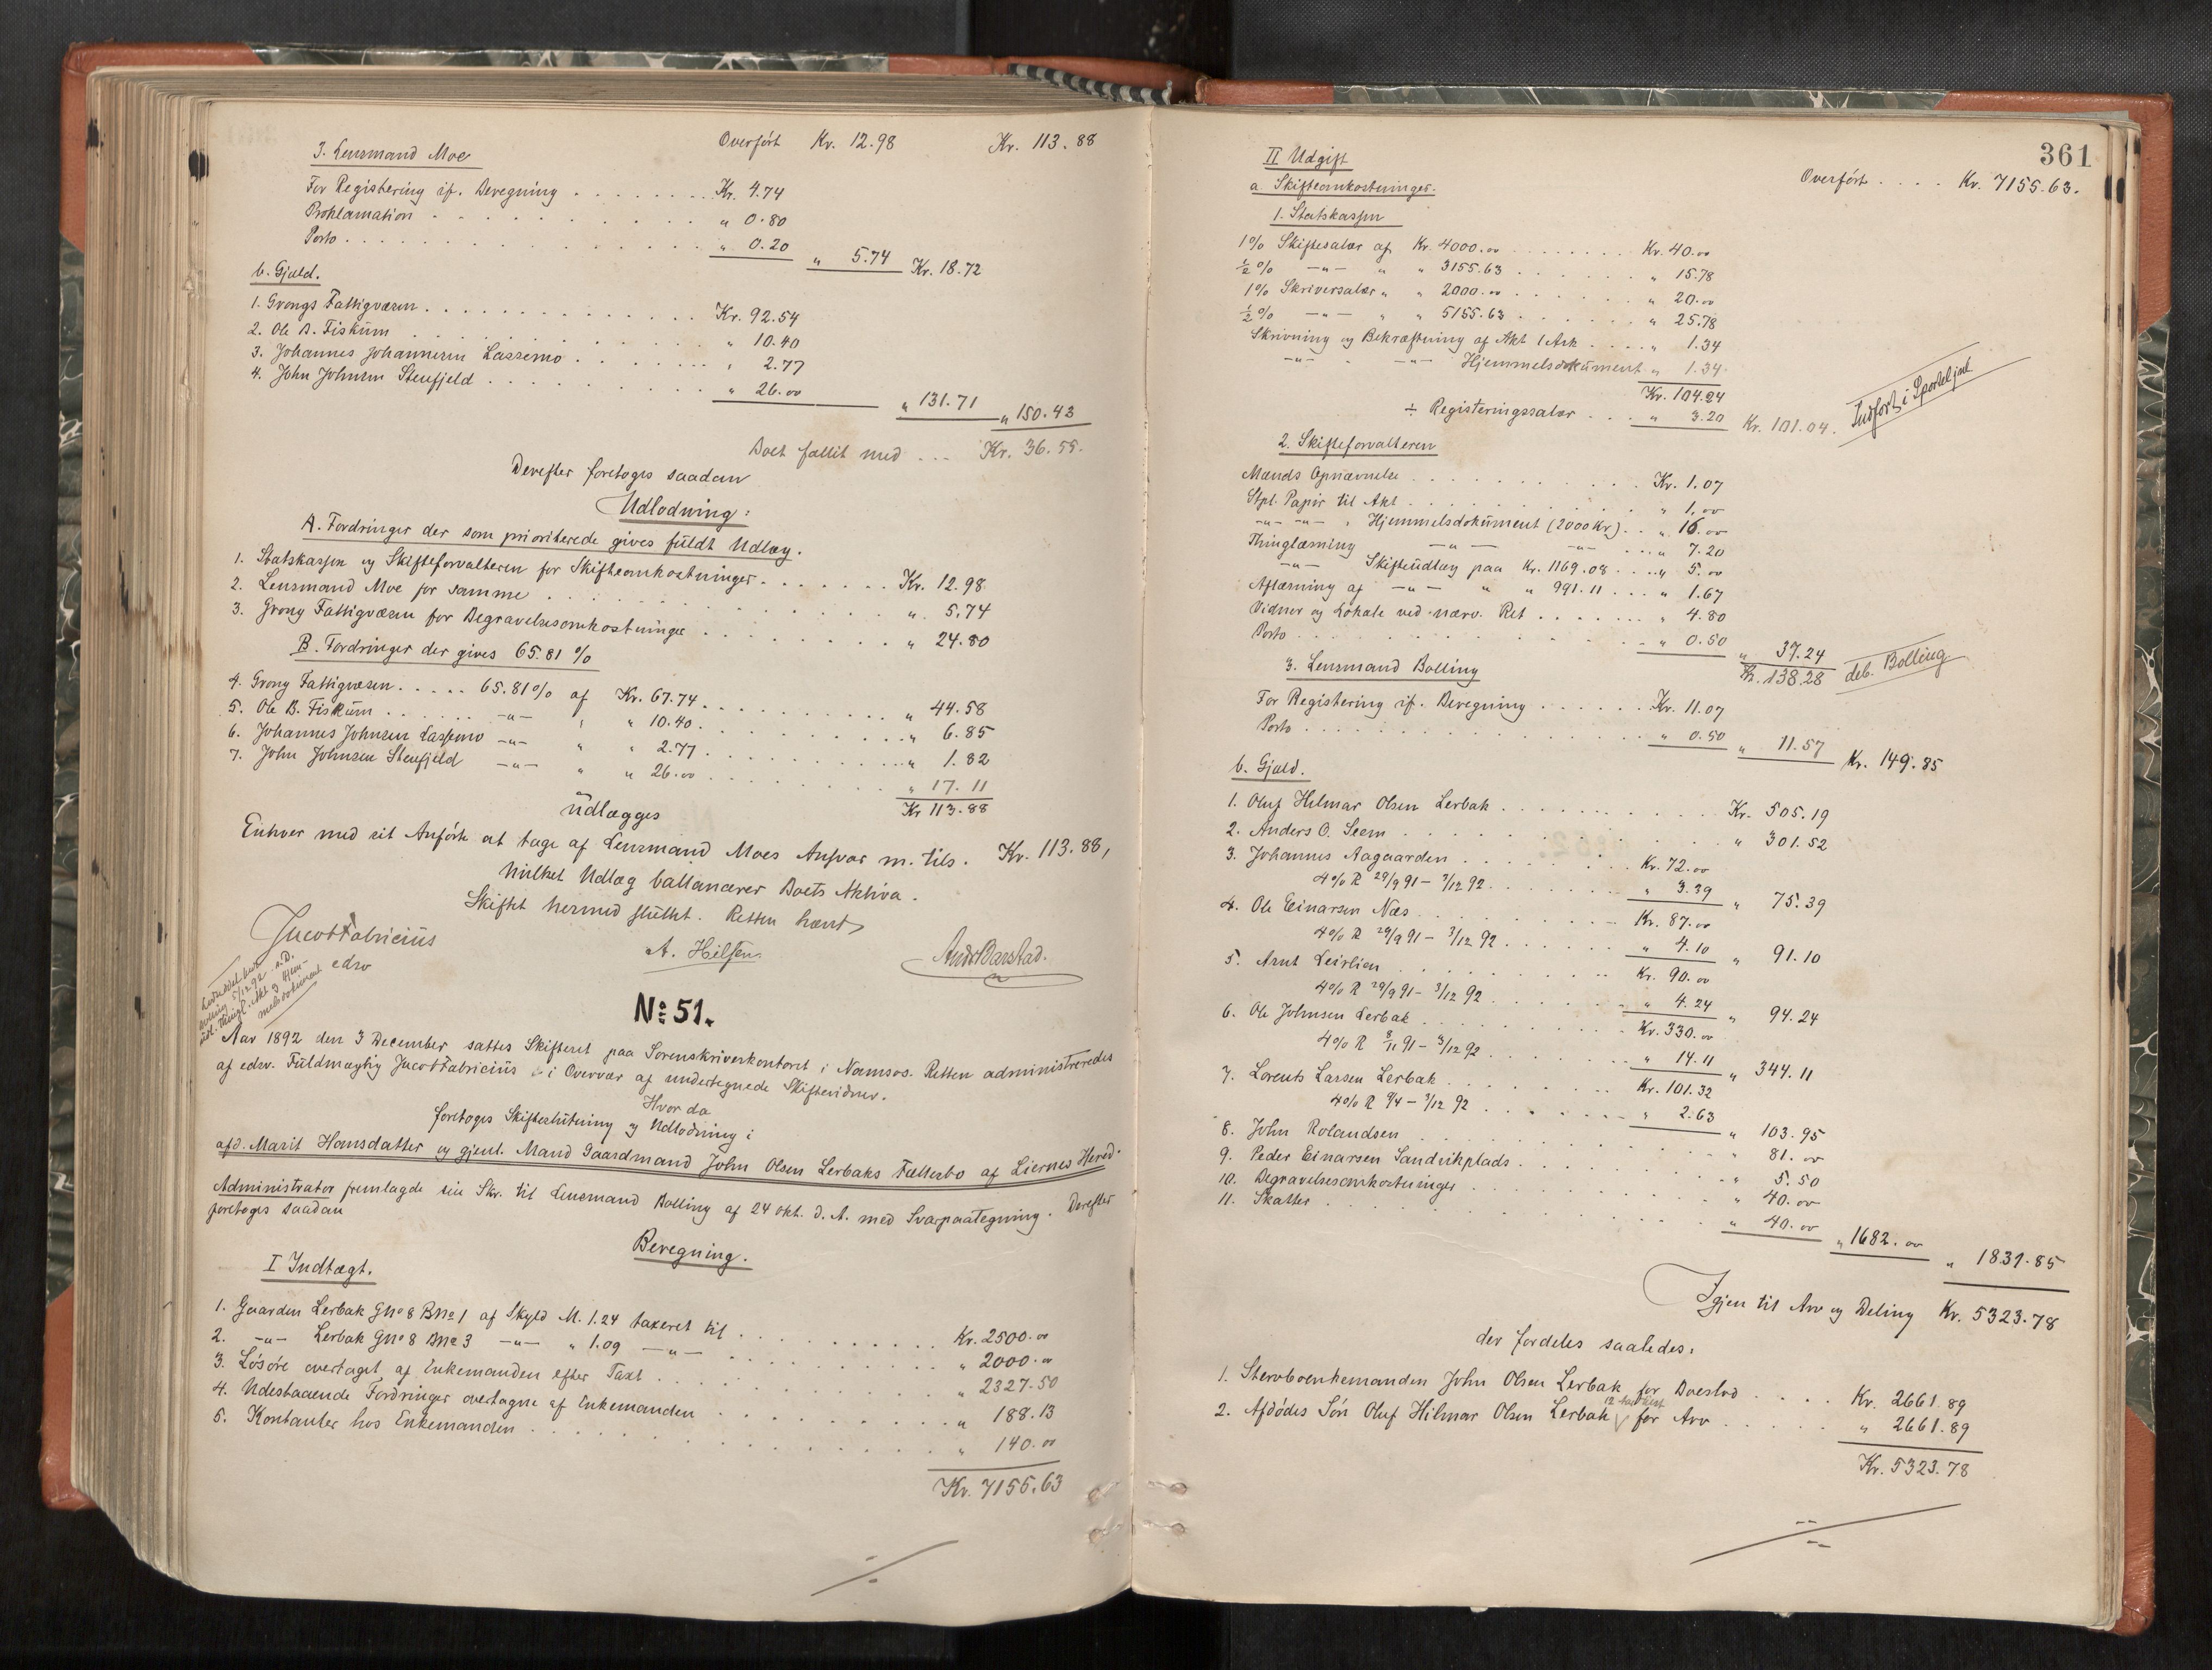 Overført Kr. 12.98 Kr. 113.88
3. Lensmand Moe
For Registering if. Beregning . . . . . . . Kr. 4.74
Proklamation . . . . . . . . . . " 0.80
Porto . . . . . . . . . . . . . " 0.20 " 5.74 Kr. 18.72
b. Gjæld.
1. Grongs Fattigvæsen . . . . . . . . . . . Kr. 92.54
2. Ole B. Fiskum . . . . . . . . . . . " 10.40
3. Johannes Johannesen Lassemo . . . . . . " 2.77
4. John Johnsen Stenfjeld . . . . . . . . . " 26.00 " 131.71 " 150.43
Boet fallit med . . . Kr. 36.55.
Derefter foretoges saadan
Udlodning:
A. Fordringer der som prioriterede gives fuldt Udlæg.
1. Statskassen og Skifteforvalteren for Skifteomkostninger . . . . . . Kr. 12.98
2. Lensmand Moe for samme . . . . . . . . . . . " 5.74
3. Grong Fattigvæsen for Begravelsesomkostninger . . . . . . . . " 24.80
B. Fordringer der gives 65.81 %
4. Grong Fattigvæsen . . . . . 65.81% af Kr. 67.74 . . . . . . . . . " 44.58
5. Ole B. Fiskum . . . . . . -"- " " 10.40 . . . . . . . . . " 6.85
6. Johannes Johnsen Lassemo -"- " " 2.77 . . . . . . . . . " 1.82
7. John Johnsen Stenfjeld -"- " " 26.00 . . . . . . . . " 17.11
Udlægges Kr 113.88
Enhver med sit Anførte at tage af Lensmand Moes Ansvar m. tils. Kr. 113.88,
hvilket Udlæg ballancerer Boets Aktiva.
Skiftet hermed sluttet. Retten hævet
Jacob Fabricius
edsv
A. Hilsen.
And. Barstad.
No 51.
Aar 1892 den 3 December sattes Skifteret paa Sorenskriverkontoret i Namsos. Retten administreredes
af edsv. Fuldmægtig Jacob Fabricius i Overvær af undertegnede Skiftevidner.
Hvor da
foretoges Skifteslutning og Udlodning i
afd. Marit Hansdatter og gjenl. Mand Gaardmand John Olsen Lerbaks Fællesbo af Liernes Hered.
Administrator fremlagde sin Skr. til Lensmand Bolling af 24 okt. d. A. med Svarpaategning. Derefter
foretoges saadan
Beregning.
I Indtægt.
1. Gaarden Lerbak Gno 8 Bno 1 af Skyld M. 1.24 taxeret til . . . . . . . . . Kr. 2500.00
2. -"- Lerbak Gno 8 Bno 3 -"- " 1.09 -"- . . . . . . . . . . " 2000.00
3. Løsøre overtaget af Enkemanden efter Taxt . . . . . . . . . . . " 2327.50
4. Udestaaende Fordringer overtagne af Enkemanden . . . . . . . . . " 188.13
5. Kontanter hos Enkemanden . . . . . . . . . . . . . . . " 140.00
Kr. 7155.63
361
Overført . . . . Kr. 7155.63.
II Udgift
a. Skifteomkostninger.
1. Statskassen
1% Skiftesalær af Kr. 4000.00 . . . . . . . . Kr. 40.00
½% -"- " " 3155.63 . . . . . . . " 15.78
1% Skriversalær " " 2000.00 . . . . . . . " 20.00
½% -"- " " 5155.63 . . . . . . . " 25.78
Skrivning og Bekræftning af Akt 1 Ark . . . . " 1.34
-"- " -"- Hjemmelsdokument " 1.34
Kr. 104.24
÷ Registeringssalær . . . " 3.20 Kr. 101.04.
Indført i Sporteljnl.
2. Skifteforvalteren
Mænds Opnævnelse . . . . . . . . . . . Kr. 1.07
Stpl. Papir til Akt . . . . . . . . . . " 1.00
-"- -"- " Hjemmelsdokument (2000 Kr.) . . " 16.00
Thinglæsning -"- -"- . . . " 7.20
-"- Skifteudlæg paa Kr. 1169.08 . . . . " 5.00
Aflæsning af -"- " " 991.11 . . . . " 1.67
Vidner og Lokale ved nærv. Ret . . . . . . . " 4.80
Porto . . . . . . . . . . . . . . " 0.50 " 37.24
Kr. 138.28 deb. Bolling
3. Lensmand Bolling
For Registering if. Beregning . . . . . . Kr. 11.07
Porto . . . . . . . . . . . . . . " 0.50 " 11.57 Kr. 149.85
b. Gjæld.
1. Oluf Hilmar Olsen Lerbak . . . . . . . . . . . Kr. 505.19
2. Anders O. Seem . . . . . . . . . . . . . . " 301.52
3. Johannes Aagaarden . . . . . . . . Kr. 72.00
4% R 29/9 91 - 3/12 92 . . . . . . " 3.39 " 75.39
4. Ole Einarsen Næs . . . . . . . . . Kr. 87.00
4% R 29/9 91 - 3/12 92 . . . . . . " 4.10 " 91.10
5. Arnt Leirlien . . . . . . . . . . Kr. 90.00
4% R 29/9 91 - 3/12 92 . . . . . . " 4.24 " 94.24
6. Ole Johnsen Lerbak . . . . . . . . . Kr. 330.00
4% R 8/11 91 - 3/12 92 . . . . . . " 14.11 " 344.11
7. Lorents Larsen Lerbak . . . . . . . . Kr. 101.32
4% R 9/4 - 3/12 92 . . . . . . . " 2.63 " 103.95
8. John Rolandsen . . . . . . . . . . . . . " 81.00
9. Peder Einarsen Sandvikplads . . . . . . . . . " 5.50
10. Begravelsesomkostninger . . . . . . . . . . " 40.00
11. Skatter . . . . . . . . . . . . . . . " 40.00 " 1682.00 " 1831.85
Igjen til Arv og Deling Kr. 5323.78
der fordeles saaledes:
1. Stervboenkemanden John Olsen Lerbak for Boeslod . . . . Kr. 2661.89
2. Afdødes Søn Oluf Hilmar Olsen Lerbak for Arv . . . . . " 2661.89
Kr. 5323.78